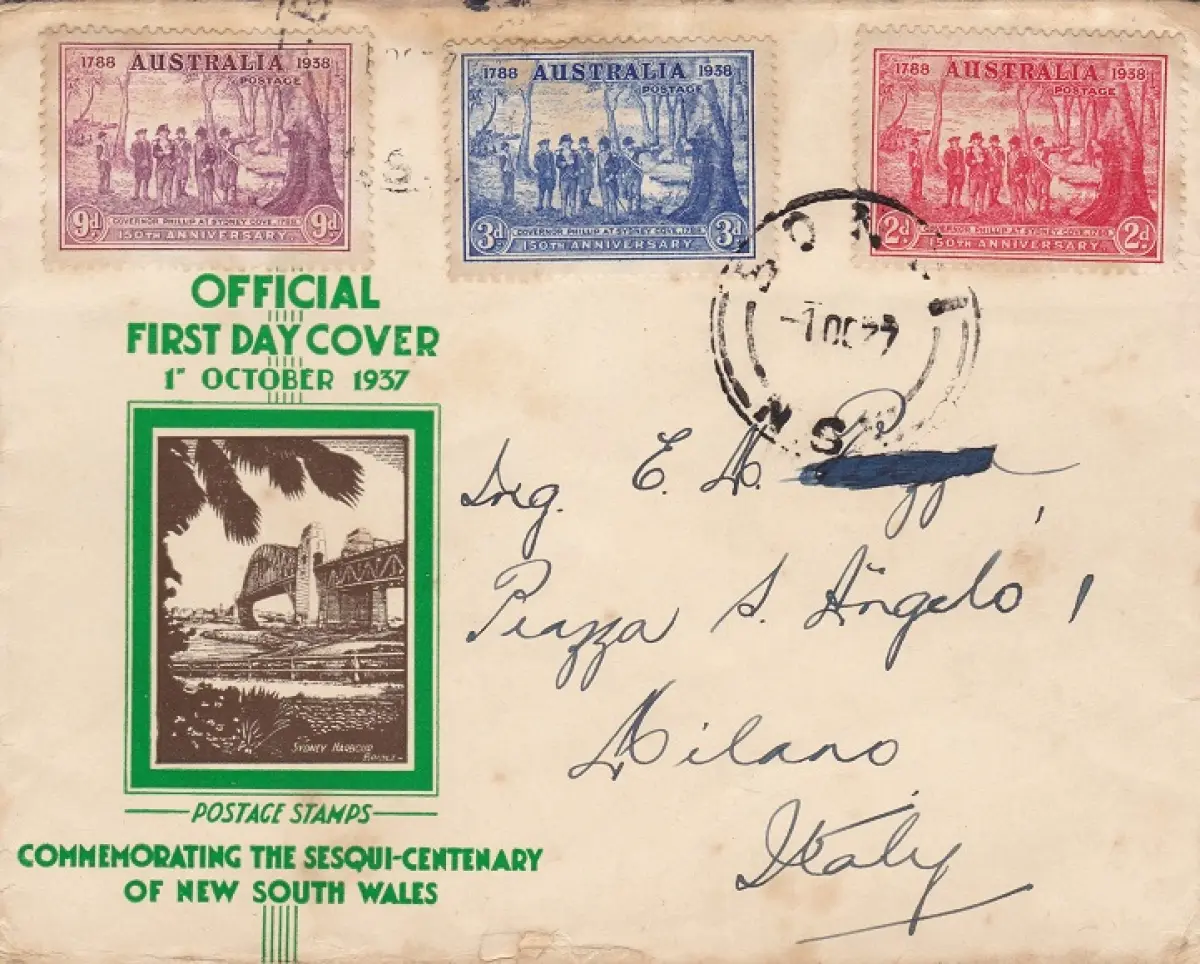 1788 AUSTRALIA 1938
POSTAGE
9d GOVERNOR PHILLIP AT SYDNEY COVE, 1788 9d
150TH ANNIVERSARY
1788 AUSTRALIA 1938
POSTAGE
3d GOVERNOR PHILLIP AT SYDNEY COVE, 1788 3d
150TH ANNIVERSARY
1788 AUSTRALIA 1938
POSTAGE
2d GOVERNOR PHILLIP AT SYDNEY COVE, 1788 2d
150TH ANNIVERSARY
OFFICIAL
FIRST DAY COVER
1st OCTOBER 1937
SYDNEY HARBOUR
BRIDGE
POSTAGE STAMPS
COMMEMORATING THE SESQUI-CENTENARY
OF NEW SOUTH WALES
-1 OC 37
Ing. E. M.
Piazza S. Angelo 1
Milano
Italy